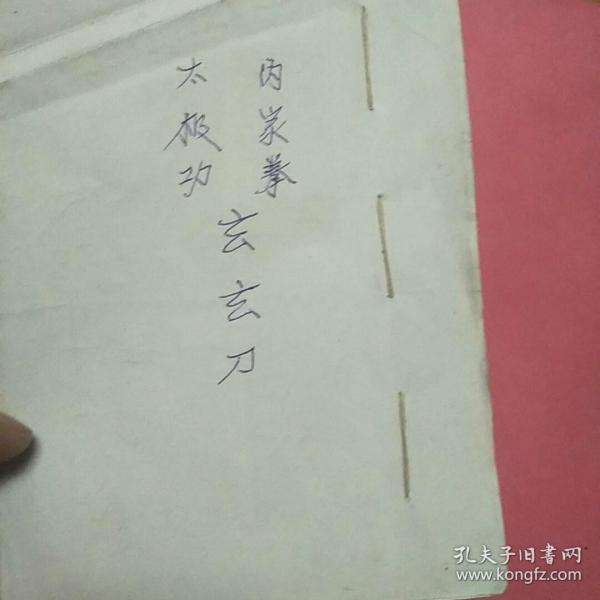 内家拳
太极功
玄玄刀
孔夫子旧书网
www.kongfz.com